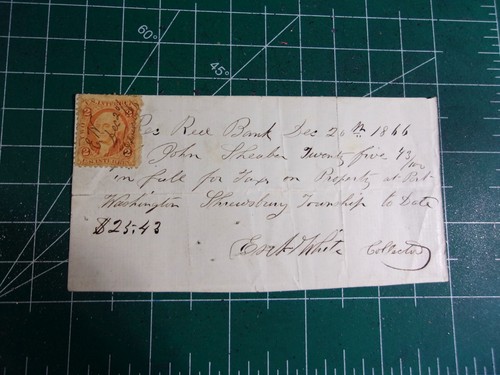 60°
45°
Red Bank Dec 20th 1866
John Sheaber Twenty five 43/100
in full for Taxes on Property at Port
Washington Shrewsbury Township to Date
$25.43
White Collector